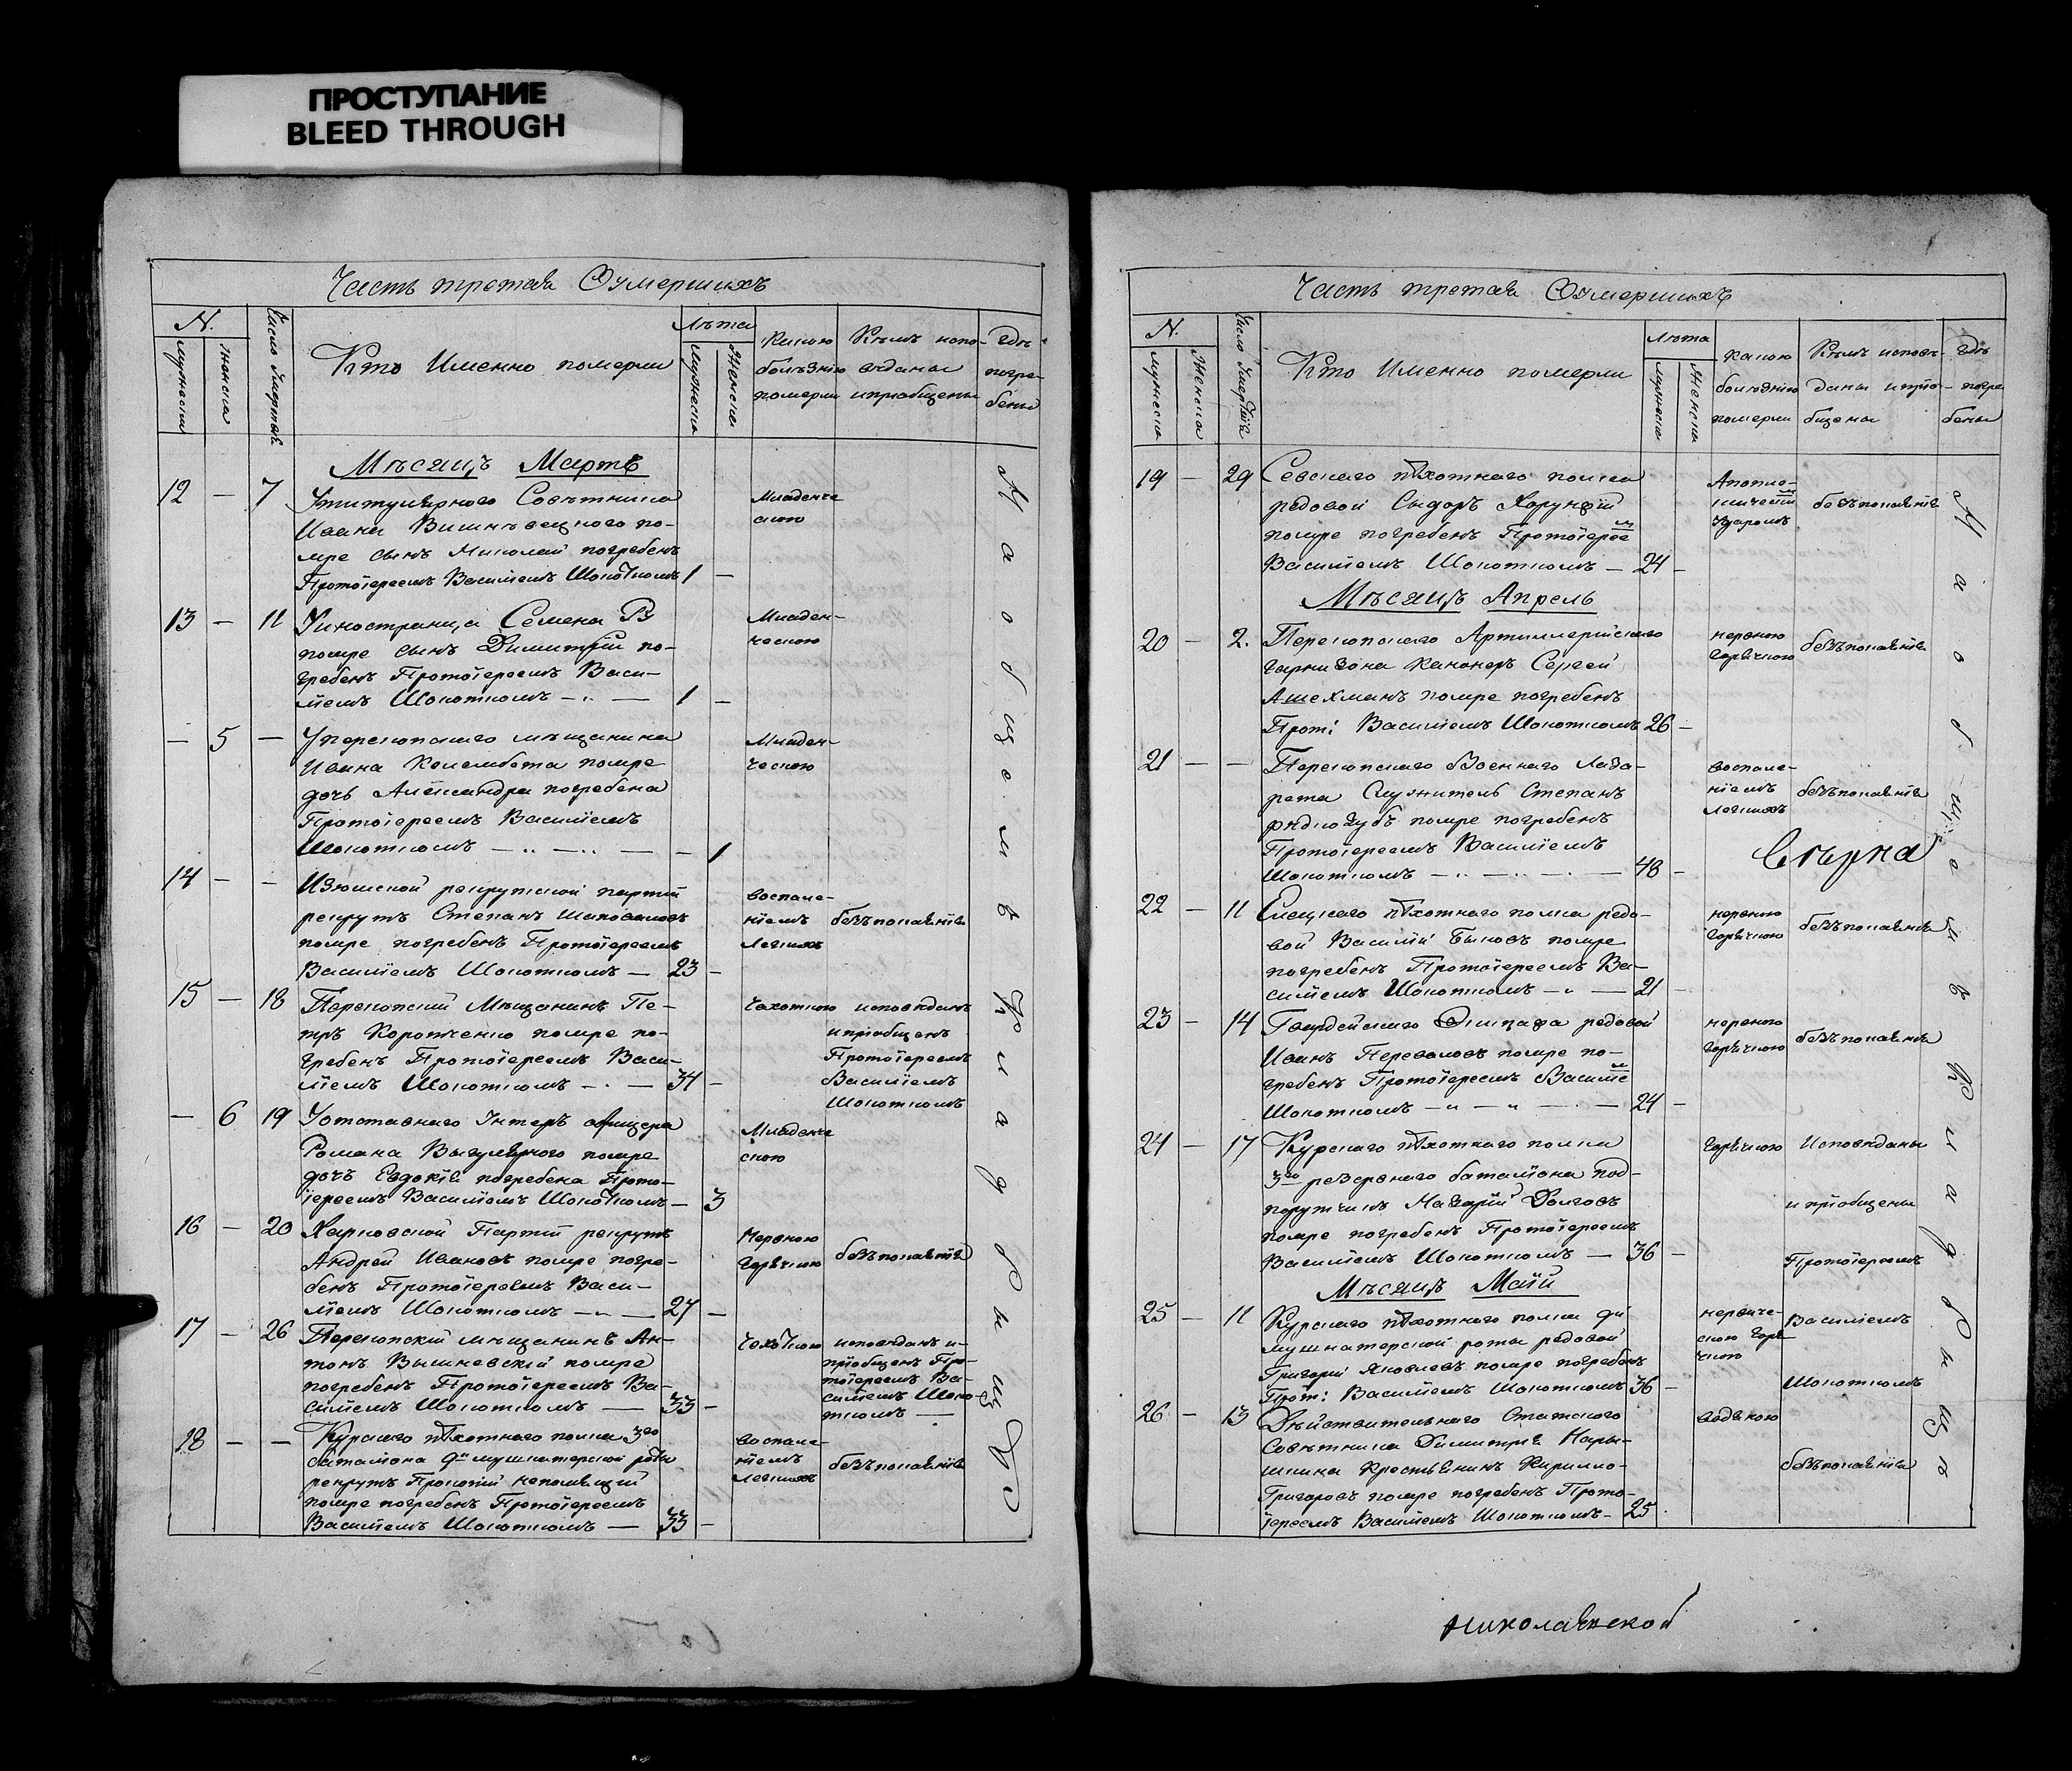 ПРОСТУПАНИЕ
BLEED THROUGH
Часть третая Оумершихъ
N.
Мужеска
Женска
Число Умертвія
Кто Именно померли
Лѣта
Мужеска
Женска
Какою болѣзнію померли
Кѣмъ исповѣданы и пріобщены
Гдѣ погребены
Мѣсяцъ Мартъ
12 — 7 Утитулярного Совѣтника
Ивана Вишнѣвецкого по-
мре сынъ Николай погребенъ
Протоіереемъ Василіемъ Шокоткомъ 1 —
Младенче
скою
13 — 11 Уиностранца Семена
помре сынъ Димитрій по-
гребенъ Протоіереемъ Васи-
ліемъ Шокоткомъ — 1 —
Младен-
ческою
— 5 — Уперекопскаго мѣщанина
Ивана Келембета помре
дочь Александра погребена
Протоіереемъ Василіемъ
Шокоткомъ — — 1
Младен-
ческою
14 — — Изюмской рекрутской партіи
рекрутъ Степанъ Шаповаловъ
помре погребенъ Протоіереемъ
Василіемъ Шокоткомъ — 23 —
воспале-
ніемъ
Легкихъ
безъпокаянія
15 — 18 Перекопскій Мѣщанинъ Пе-
тръ Короткенко помре по-
гребенъ Протоіереемъ Васи-
ліемъ Шокоткомъ — 34 —
Чахоткою
исповѣданъ
и пріобщенъ
Протоіереемъ
Василіемъ
Шокоткомъ
— 6 19 Уотставнаго Унтеръ офицера
Романа Выгулярного помре
дочъ Евдокія погребена Прото-
іереемъ Василіемъ Шокоткомъ — 3
Младенче
скою
16 — 20 Харковской Партіи рекрутъ
Андрей Ивановъ помре погре-
бенъ Протоіереемъ Васи-
ліемъ Шокоткомъ — 27 —
Нервною
Горячкою
безъпокаянія
17 — 26 Перекопскій мѣщанинъ Ан-
тонъ Вышневскій помре
погребенъ Протоіереемъ Ва-
силіемъ Шокоткомъ — 33 —
Чахоткою
исповѣданъ и-
пріобщенъ Про-
тоіереемъ Ва-
силіемъ Шоко-
ткомъ —
18 — — Курскаго пѣхотнаго полка 3го
баталіона 9й мушкатерской роты
рекрутъ Прокопій
помре погребенъ Протоіереемъ
Василіемъ Шокоткомъ — 33 —
воспале-
ніемъ
Легкихъ
безъпокаянія
На общемъ кладбыщѣ
Часть третая Оумершихъ
N.
Мужеска
Женска
Число Умертвія
Кто Именно померли
Лѣта
Мужеска
Женска
Какою болѣзнію померли
Кѣмъ исповѣданы и пріобщены
Гдѣ погребены
19 — 29 Севскаго пѣхотнаго полка
рядовой Сыдоръ Хорунжій
помре погребенъ Протоіереемъ
Василіемъ Шокоткомъ — 24 —
Апопле-
ксическимъ
Ударомъ
безъпокаянія
Мѣсяцъ Апрель
20 — 2. Перекопскаго Артиллерійскаго
гарнизона Канонеръ Сергей
Ашехманъ помре погребенъ
Прот: Василіемъ Шокоткомъ 26 —
нервною
Горячкою
безъпокаянія
21 — — Перекопскаго Военнаго Лаза-
рета Служитель Степанъ
помре погребенъ
Протоіереемъ Василіемъ
Шокоткомъ — — 48 —
воспале-
ніемъ
Легкихъ
безъпокаянія
22 — 11 Елецкаго пѣхотнаго полка рядо-
вой Василій Быковъ помре
погребенъ Протоіереемъ Ва-
силіемъ Шокоткомъ — 21 —
нервною
Горячкою
безъпокаянія
23 — 14 Гвардейскаго Экипажа рядовой
Иванъ Переваловъ помре по-
гребенъ Протоіереемъ Василіемъ
Шокоткомъ — — 24 —
нервною
Горячкою
безъпокаянія
24 — 17 Курскаго пѣхотнаго полка
3го резервнаго баталіона под-
порутчикъ Назарій Долговъ
помре погребенъ Протоіереемъ
Василіемъ Шокоткомъ — 36 —
Горячкою
Исповѣданы
и пріобщены
Протоіереемъ
Василіемъ
Шокоткомъ
Мѣсяцъ Маій
25 — 11 Курскаго пѣхотнаго полка 9й
мушкатерской роты рядовой
Григорій Яковлевъ помре погребенъ
Прот: Василіемъ Шокоткомъ 36 —
нервиче-
скою Горя-
чкою
26 — 13 Дѣйствительнаго Статскаго
Совѣтника Димитрія Нары-
шкина Крестьянинъ Кирилло-
Григоровъ помре погребенъ Прото-
іереемъ Василіемъ Шокоткомъ — 25
водяною
безъпокаянія
На общемъ кладбыщѣ
Николаевской